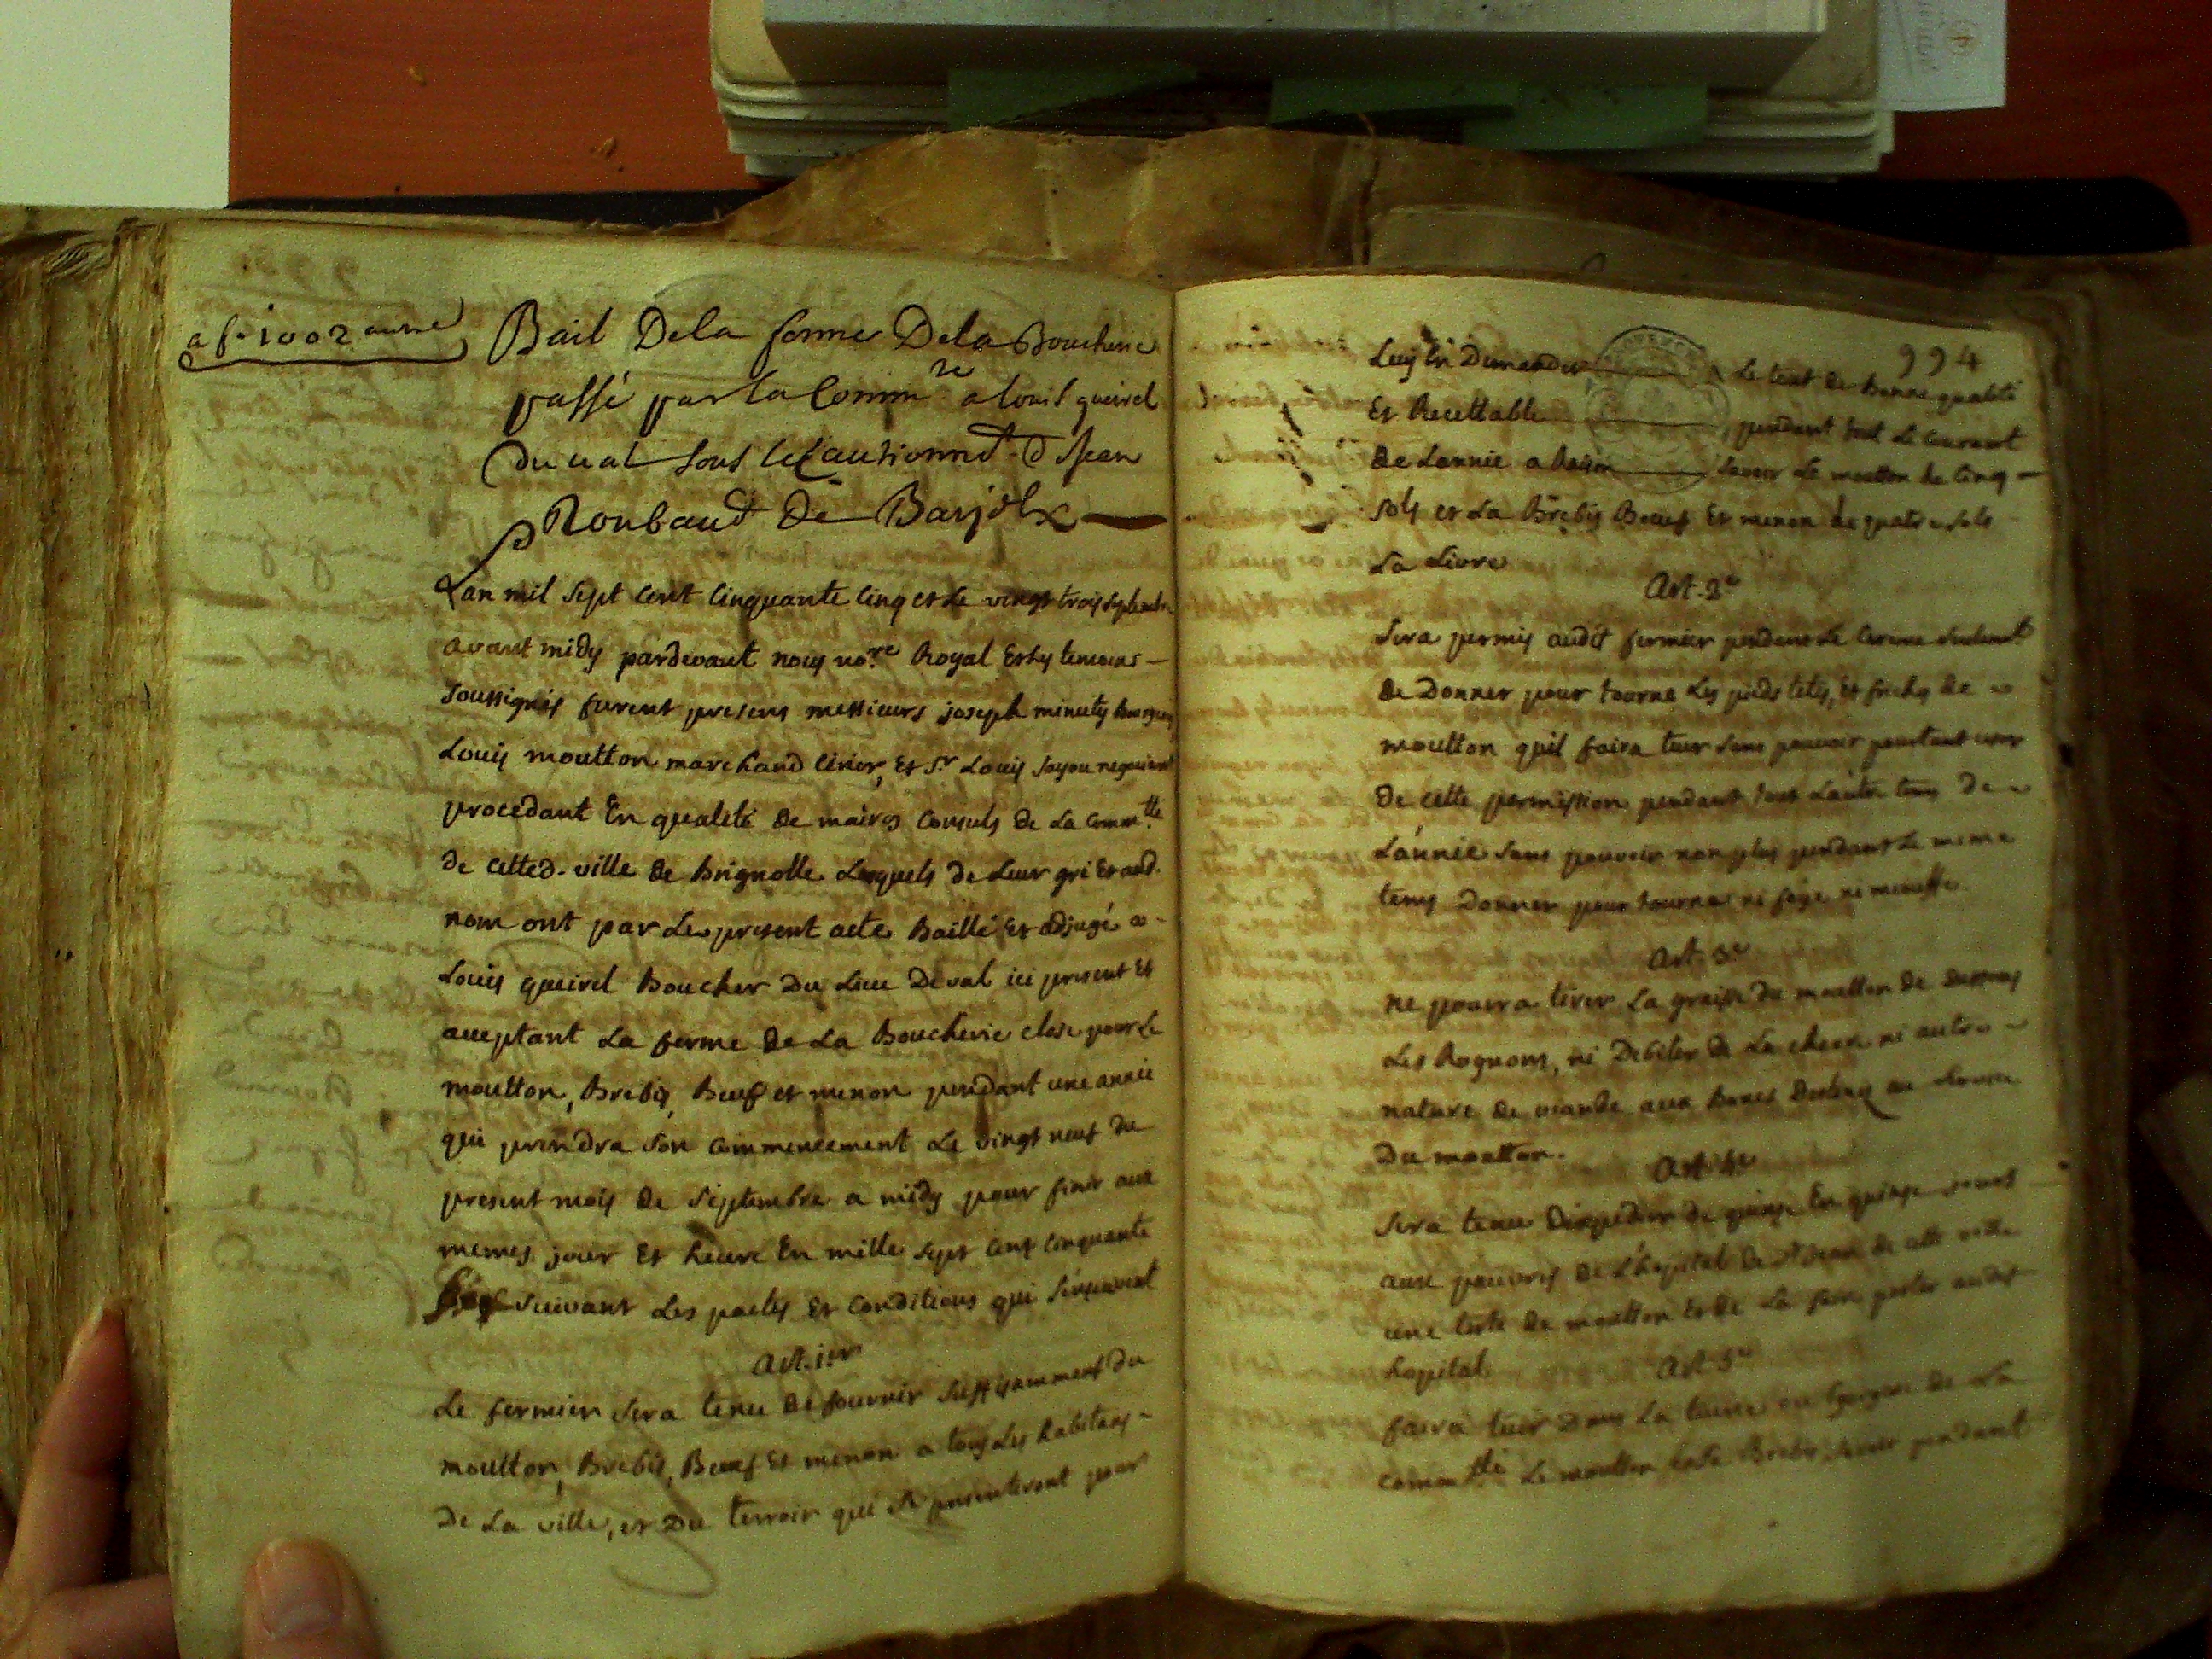 a f.o 1002 autre
Bail De la ferme De la Boucherie
passé par la Comm.te a Louis queirel
Du val sous le Cautionnem.t de Jean
Roubaud De Barjols
Lan mil sept cent cinquante cinq et Le vingt trois septembre
avant midy pardevant nous no.re Royal Et les temoins
soussignés furent presens messieurs joseph minuty Bourgeois
Louis moutton marchand cirier, Et S.r Louis fayou negociant
procedant En qualité De maires Consuls de La Comm.tté
de cette d. ville De Brignolle Lesquels de Leur gré Et aud.
nom ont par Le present acte Baillé Et adjugé a
Louis queirel Boucher Du Lieu De val ici present Et
acceptant La ferme De La Boucherie close pour Le
moutton, Brebis, Beuf et menon pendant une année
qui prendra son commencement Le vingt neuf du
present mois de Septembre a midy pour finir aux
memes jour Et heure En mille sept cent cinquante
six suivant Les pactes Et conditions qui s'ensuivent
Art. 1er
Le fermier sera tenu De fournir suffisamment du
moutton, Brebis, Beuf Et menon a tous Les habitans
De La ville, et Du terroir qui se presenteront pour
994
Luy En Demander Le tout de Bonne qualité
Et Recettable pendant tout Le courant
De Lannée a Raison savoir Le moutton de cinq
sols et La Brebis Beuf Et menon de quatre sols
La Livre
Art. 2e
Sera permis audit fermier pendant Le Careme seulement
De Donner pour tourne Les pieds tetes, et friches de
moutton quil faira tuer sans pouvoir pourtant user
De cette permission pendant tout Lautre tems De
Lannée sans pouvoir non plus pendant Le meme
tems Donner pour tourne ni foye ni mouffle
Art. 3e
ne pourra tirer La graisse du moutton de dessus
Les Rognons, ni Debiter de La chevre ni autre
nature de viande aux Bancs Destinés au
Du moutton.
Art. 4e
Sera tenu D'expedier de quinze En quinze jours
aux pauvres De L'hopital De St Jean de cette ville
une teste De moutton Et de La faire porter audit
hopital
Art. 5e
faira tuer Dans La tuerie ou Egorgerie de La
commu.tté Le moutton et La Brebis, savoir pendant